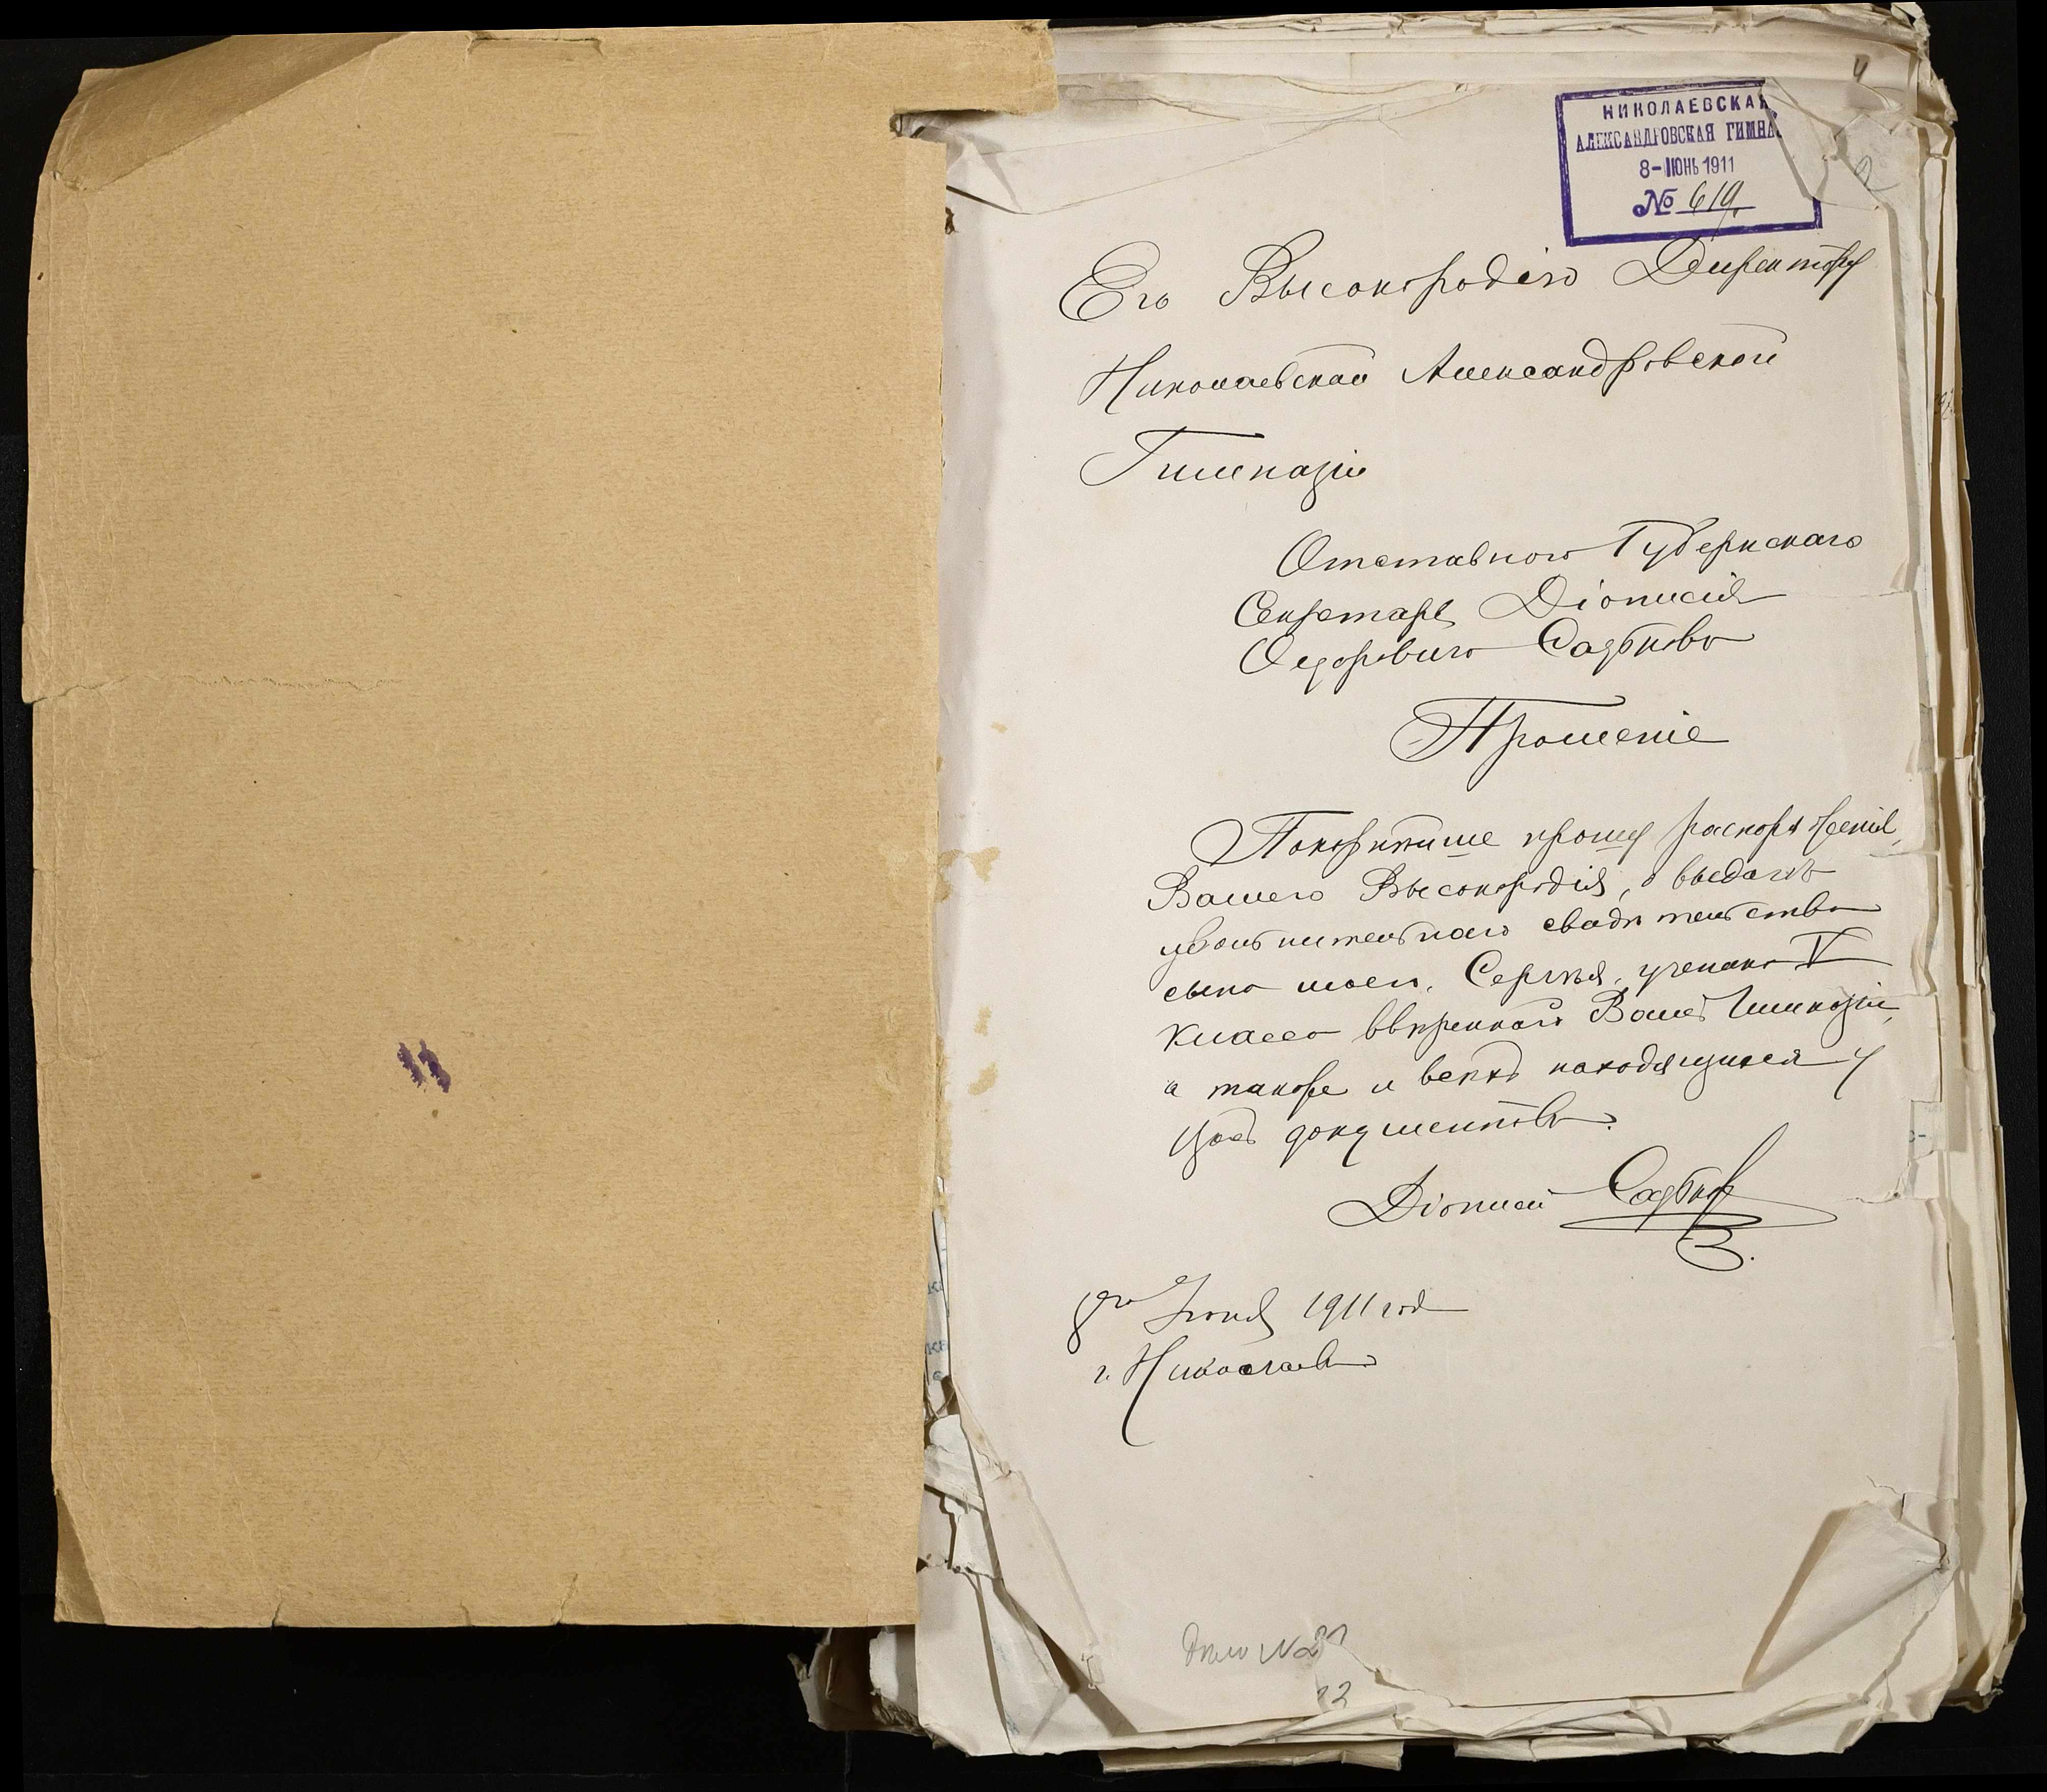 4
НИКОЛАЕВСКАЯ
АЛЕКСАНДРОВСКАЯ ГИМНА
8-ІЮНЬ 1911
№ 619.
2
Его Высокородію Директору
Николаевской Александровской
Гимназіи
Отставного Губернскаго
Секретаря Діонисія
Федоровича Садькова
Прошеніе
Покорнѣйше прошу распоряженія
Вашего Высокородія, о выдачѣ
увольнительнаго свидѣтельства
сына моего, Сергѣя, ученика V
класса ввѣренной Вамъ Гимназіи,
а также и всѣхъ находящихся у
Васъ документовъ.
Діонисій Садьков
8го Іюня 1911 года
г. Николаевъ
Дѣло №